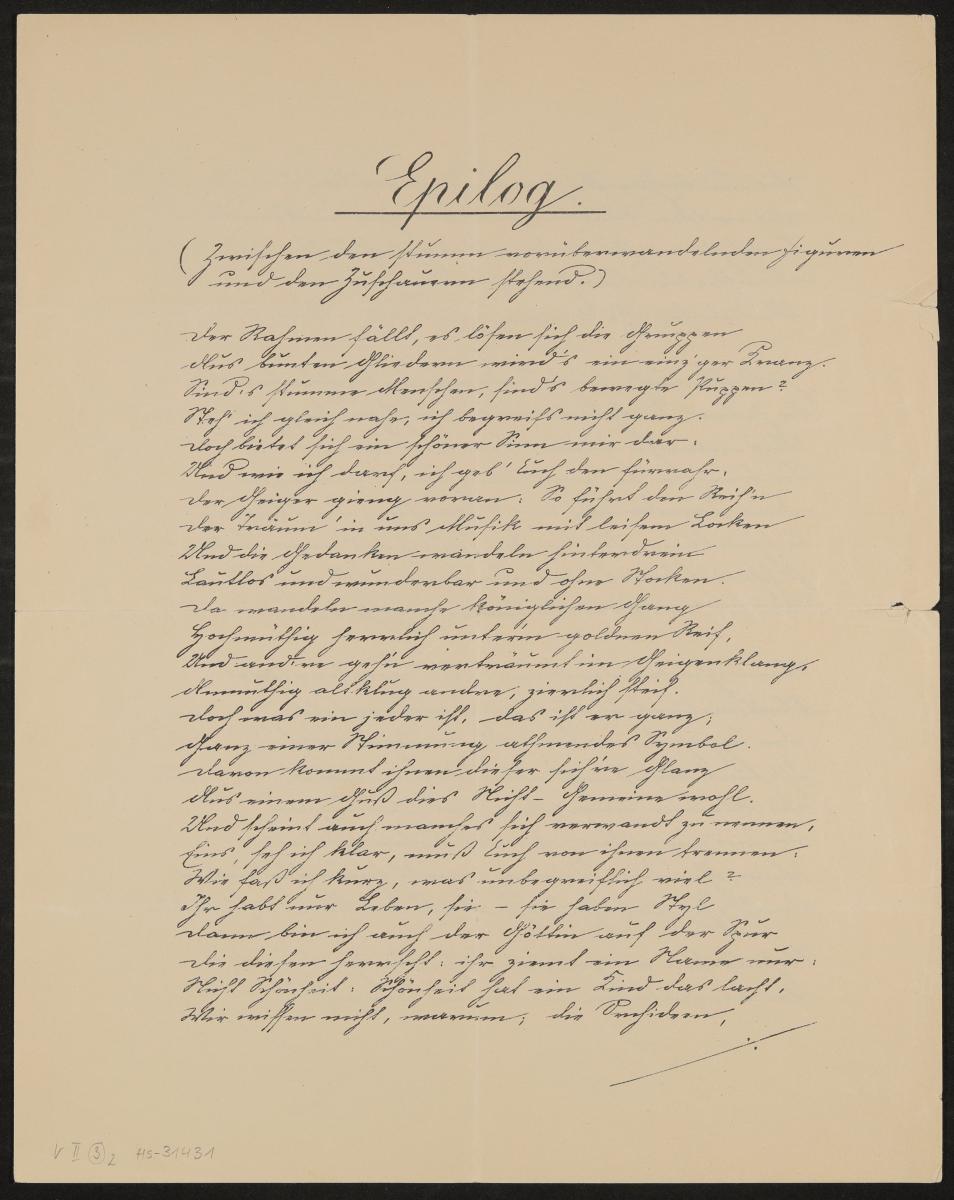 Epilog.
(Zwischen den stumm vorüberwandelnden Figuren
und den Zuschauern stehend.)
Der Rahmen fällt, es lösen sich die Gruppen
Aus bunten Gliedern wird's ein einz'ger Kranz.
Sind's stumme Menschen, sind's bewegte Puppen?
Steh' ich gleich nahe, ich begreifs nicht ganz.
Doch bietet sich ein schöner Sinn mir dar.
Und wie ich darf, ich geb' Euch den fürwahr.
Der Geiger gieng voran: So führt den Reih'n
Der Träum' in uns Musik mit leisem Locken
Und die Gedanken wandeln hinterdrein
Lautlos und wunderbar und ohne Stocken.
Da wandeln manche königlichen Gang
Hochmüthig herrlich unter'm goldnen Reif,
Und and're geh'n verträumt im Geigenklang,
Anmuthig altklug andre, zierlich steif.
Doch was ein jeder ist, das ist er ganz;
Ganz einer Stimmung athmendes Symbol.
Davon kommt ihnen dieser sich're Glanz
Aus einem Guß dies Nicht-Gemeine wohl.
Und scheint auch manches sich verwandt zu nennen,
Eins, seh ich klar, muß Euch von ihnen trennen:
Wie faß ich kurz, was unbegreiflich viel?
Ihr habt nur Leben, sie – sie haben Styl
Dann bin ich auch der Göttin auf der Spur
Die diesen herrscht: ihr ziemt ein Name nur:
Nicht Schönheit: Schönheit hat ein Kind das lacht,
Wir wissen nicht, warum; die Orchideen,
./.
V II 3 2 HS-31431